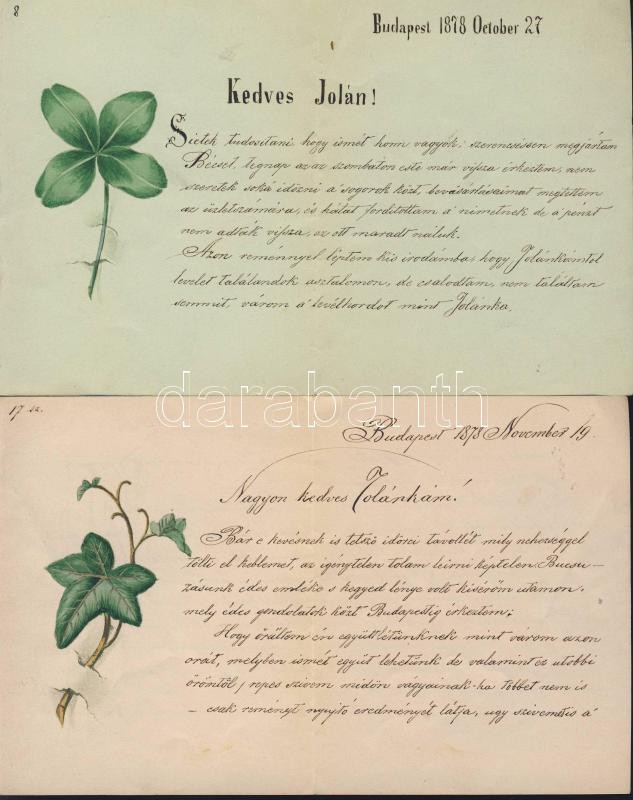 8
Budapest 1878 October 27
Kedves Jolán!
Sietek tudositani hogy ismét honn vagyok; szerencséssen megjártam
Bécset, tegnap azaz szombaton este már vissza érkeztem, nem
szeretek soká időzni a sogorok közt, bevásárlásaimat megtettem
az üzletszámára, és hátat forditottam a németnek de a pénzt
nem adták vissza, ez ott maradt náluk.
Azon reménnyel léptem kis irodámba, hogy Jolánkámtól
levelet találandok asztalomon, de csalodtam, nem találtam
semmit, várom a levélhordot mint Jolánka.
darabanth
17 sz.
Budapest 1878 November 19.
Nagyon kedves Jolánkám!
Bár e kevésnek is tetsző idörei távollét mily nehezséggel
tölti el keblemet, az igénytelen tolam leirni képtelen. Bucsu-
zásunk édes emléke s hegyed lénye volt kisérőm utamon.
mely édes gondolatok közt Budapestig érkeztem;
Hogy örültem én együttlétünknek mint várom azon
orát, melyben ismét együt lehetünk de valamint ez utobbi
örömtöl repes szivem midőn vágyainak - ha többet nem is
- csak reményt nyujtó eredményét látja, ugy szivemet is á